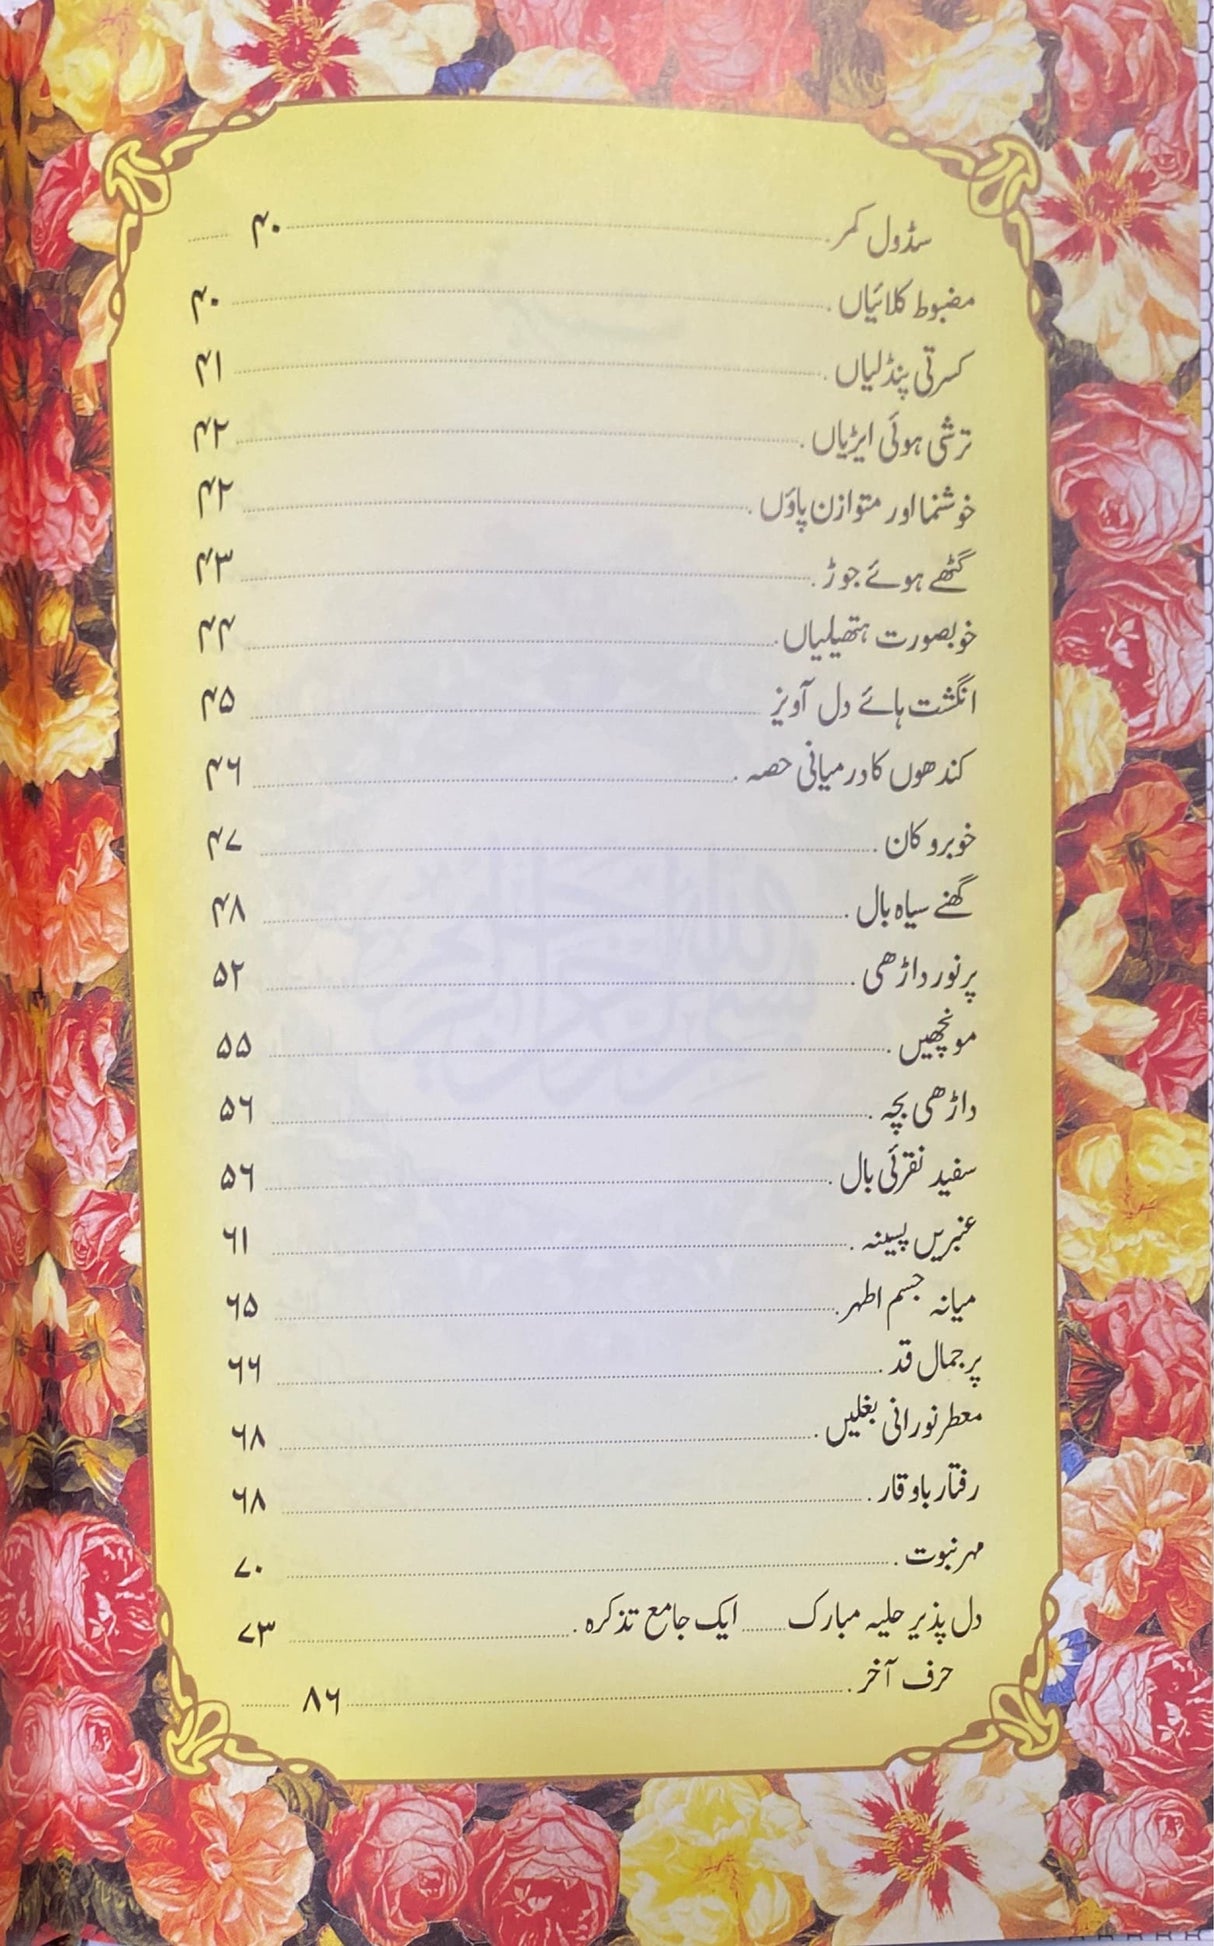 سڈول کمر ۴۰
مضبوط کلائیاں ۴۰
کسرتی پنڈلیاں ۴۱
ترشی ہوئی ایڑیاں ۴۲
خوشنما اور متوازن پاؤں ۴۲
گٹھے ہوئے جوڑ ۴۳
خوبصورت ہتھیلیاں ۴۴
انگشت ہائے دل آویز ۴۵
کندھوں کا درمیانی حصہ ۴۶
خوبرو کان ۴۷
گھنے سیاہ بال ۴۸
پرنور داڑھی ۵۲
مونچھیں ۵۵
داڑھی بچہ ۵۶
سفید نقرئی بال ۵۶
عنبریں پسینہ ۶۱
میانہ جسم اطہر ۶۵
پرجمال قد ۶۶
معطر نورانی بغلیں ۶۸
رفتار باوقار ۶۸
مہر نبوت ۷۰
دل پذیر حلیہ مبارک ...... ایک جامع تذکرہ ۷۳
حرف آخر ۸۶